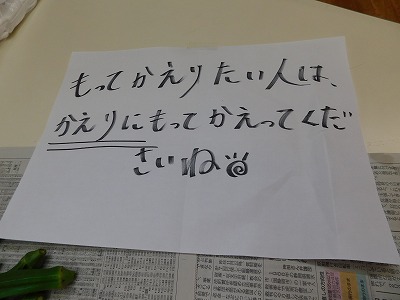 もってかえりたい人は、
かえりにもってかえってくだ
さいね